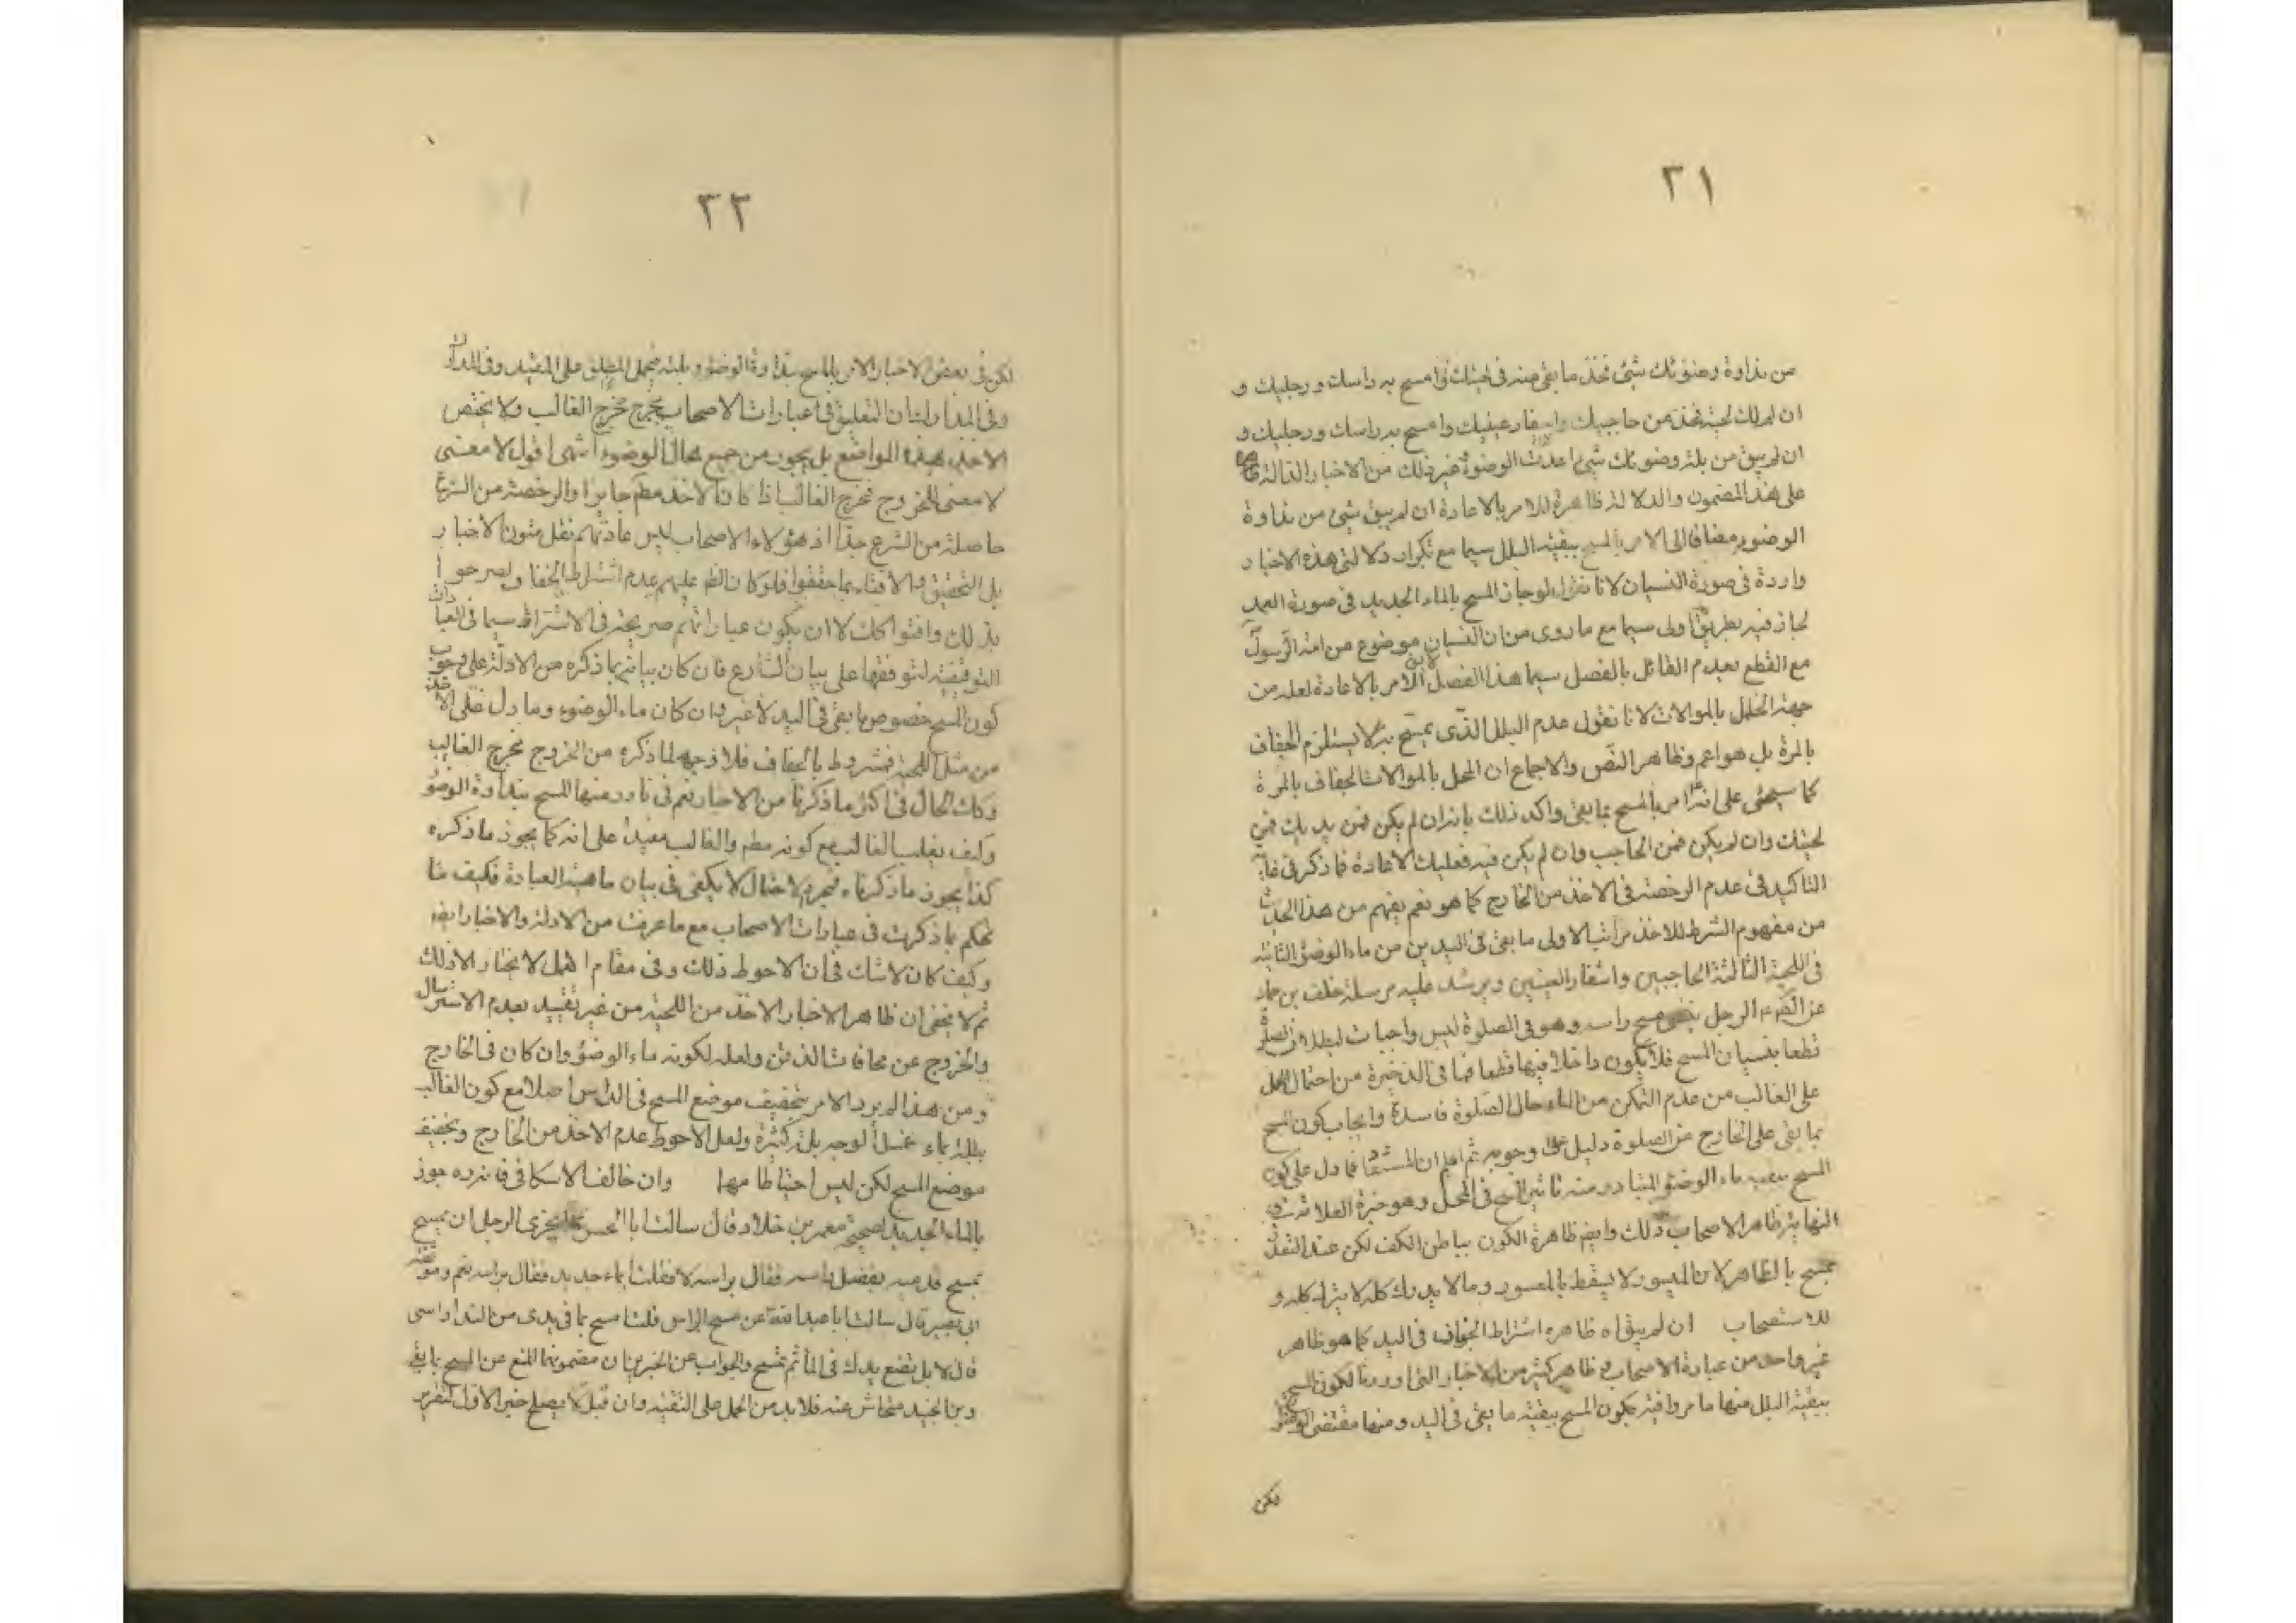 ٢١
من نداوة وضوئك شئ فخذ ما بقى منه فى لحيتك و امسح به راسك و رجليك و
ان لم يك لحية فخذ من حاجبيك واشفار عينيك وامسح به راسك ورجليك و
ان لم يبق من بلة وضوئك شئ اعدت الوضوء غير ذلك من الاخبار الدالة
على هذا المضمون والدلالة ظاهرة للامر بالاعادة ان لم يبق شئ من نداوة
الوضوء مضافا الى الامر بالمسح ببقية البلل سيما مع تكرار دلالتى هذه الاخبار
واردة فى صورة النسيان لانا نقول لو جاز المسح بالماء الجديد فى صورة العمد
لجاز فيه بطريق اولى سيما مع ما روى من ان النسيان موضوع من امة الرسول
مع القطع بعدم القائل بالفصل سيما هذا الفصل الامر بالاعادة لعله من
جهة الخلل بالموالات لانا نقول عدم البلل الذى يمسح به لا يستلزم الجفاف
بالمرة بل هو اعم وظاهر النص والاجماع ان المخل بالموالات الجفاف بالمرة
كما سيجئ على انه امر بالمسح بما بقى واكد ذلك بانه ان لم يكن فمن يديك فمن
لحيتك وان لم يكن فمن الحاجب وان لم يكن فيه فعليك الاعادة فما ذكر فى غاية
التاكيد فى عدم الرخصة فى الاخذ من الخارج كما هو نعم يفهم من هذا الحديث
من مفهوم الشرط للاخذ مراتب الاولى ما بقى فى اليدين من ماء الوضوء الثانية
فى اللحية الثالثة الحاجبين واشفار العينين ويرشد عليه مرسلة خلف بن حماد
عن الصم الرجل ينسى مسح راسه وهو فى الصلوة ليس واجبات لبطلان الصلوة
قطعا بنسيان المسح فلا يكون داخلا فيها قطعا فما فى الذخيرة من احتمال الحمل
على الغالب من عدم التمكن من الماء حال الصلوة فاسدة وايجاب كون المسح
بما بقى على الخارج عن الصلوة دليل على وجوبه ثم اعلم ان المستفاد مما دل على كون
المسح ببقية ماء الوضوء المتبادر منه تاثير المسح فى المحل وهو خيرة العلامة فى
النهاية وظاهر الاصحاب ذلك وايضم ظاهرة الكون بباطن الكف لكن عند التعذر
يمسح بالظاهر لان الميسور لا يسقط بالمعسور وما لا يدرك كله لا يترك كله و
للاستصحاب ان لم يبق اه ظاهره اشتراط الجفاف فى اليد كما هو ظاهر
غير واحد من عبارة الاصحاب و ظاهر كثير من الاخبار التى اوردنا لكون المسح
ببقية البلل منها ما مر وافية بكون المسح ببقية ما بقى فى اليد ومنها مقتضى الوضوء
لكن
٢٢
لكن فى بعض الاخبار الامر بالمسح بنداوة الوضوء وبلته فيحمل المطلق على المقيد وفى المدارك
وفى المدارك ان التعليق فى عبارات الاصحاب يخرج مخرج الغالب ولا يختص
الاخذ بهذه المواضع بل يجوز من جميع محال الوضوء انتهى اقول لا معنى
لا معنى للخروج مخرج الغالب اذا كان الاخذ مطم جايزا والرخصة من الشرع
حاصلة من الشرع جدا اذ هؤلاء الاصحاب ليس عادتهم نقل متون الاخبار
بل التحقيق والافتاء بما حققوا فلو كان الظم عليهم عدم اشتراط الجفاف ولصرحوا
بذلك وافتوا كك لا ان يكون عباراتهم صريحة فى الاشتراط سيما فى العبادات
التوقيفية لتوقفها على بيان الشارع فان كان بيانه بما ذكره من الادلة على وجوب
كون المسح خصوص ما بقى فى اليد لا غير وان كان ماء الوضوء وما دل على الاخذ
من مثل اللحية فمشروط بالجفاف فلا وجه لما ذكره من الخروج مخرج الغالب
وكك الحال فى اكثر ما ذكرنا من الاخبار نعم فى نادر منها المسح بنداوة الوضوء
وكيف يغلب الغالب مع كونه مطم والغالب مقيدا على انه كما يجوز ما ذكره
كذا يجوز ما ذكرناه فمجرد الاحتمال لا يكفى فى بيان ماهية العبادة فكيف لنا
نحكم بما ذكرت فى عبارات الاصحاب مع ما عرفت من الادلة والاخبار ايضم
وكيف كان لا شك فى ان الاحوط ذلك وفى مقام العمل لا يختار الا ذلك
ثم لا يخفى ان ظاهر الاخبار الاخذ من اللحية من غير تقييد بعدم الاسترسال
والخروج عن محاذات الذقن ولعله لكونه ماء الوضوء وان كان فى الخارج
ومن هذا لم يرد الامر بتجفيف موضع المسح فى الراس اصلا مع كون الغالب
بلله بماء غسل الوجه بلة كثيرة ولعل الاحوط عدم الاخذ من الخارج وتجفيف
موضع المسح لكن ليس احتياطا مهما وان خالف الاسكافى فانه جوز
بالماء الجديد لصحيحة معمر بن خلاد قال سالت ابا الحسن يجزى الرجل ان يمسح
يمسح قدميه بفضل راسه فقال براسه لا فقلت ابماء جديد فقال براسه نعم وموثقة
ابى بصير قال سالت ابا عبد الله عن مسح الراس قلت امسح بما فى يدى من الندا راسى
قال لا بل تضع يدك فى الماء ثم تمسح والجواب عن الخبرين ان مضمونهما المنع عن المسح بما بقى
وبن الجنيد متحاش عنه فلا بد من الحمل على التقية وان قيل لا يصلح خبر الاول لتقرير